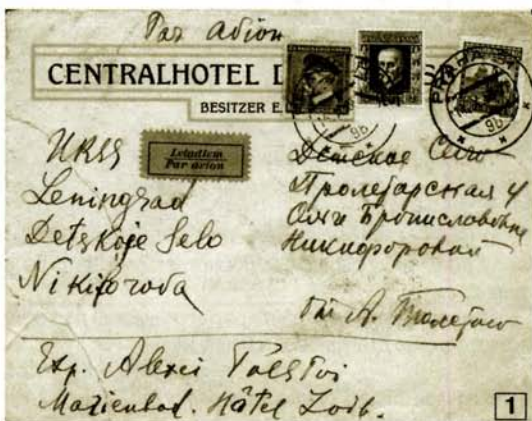 Par avion
CENTRALHOTEL
BESITZER E.
Letadlem
Par avion
PRAHA
URSS
Leningrad
Detskoje Selo
Nikiforova
Детское Село
Пролетарская 4
Ольги Брониславовне
Никифоровой
От А. Толстого
Exp. Alexei Tolstoi
Marienbad. Hôtel
1